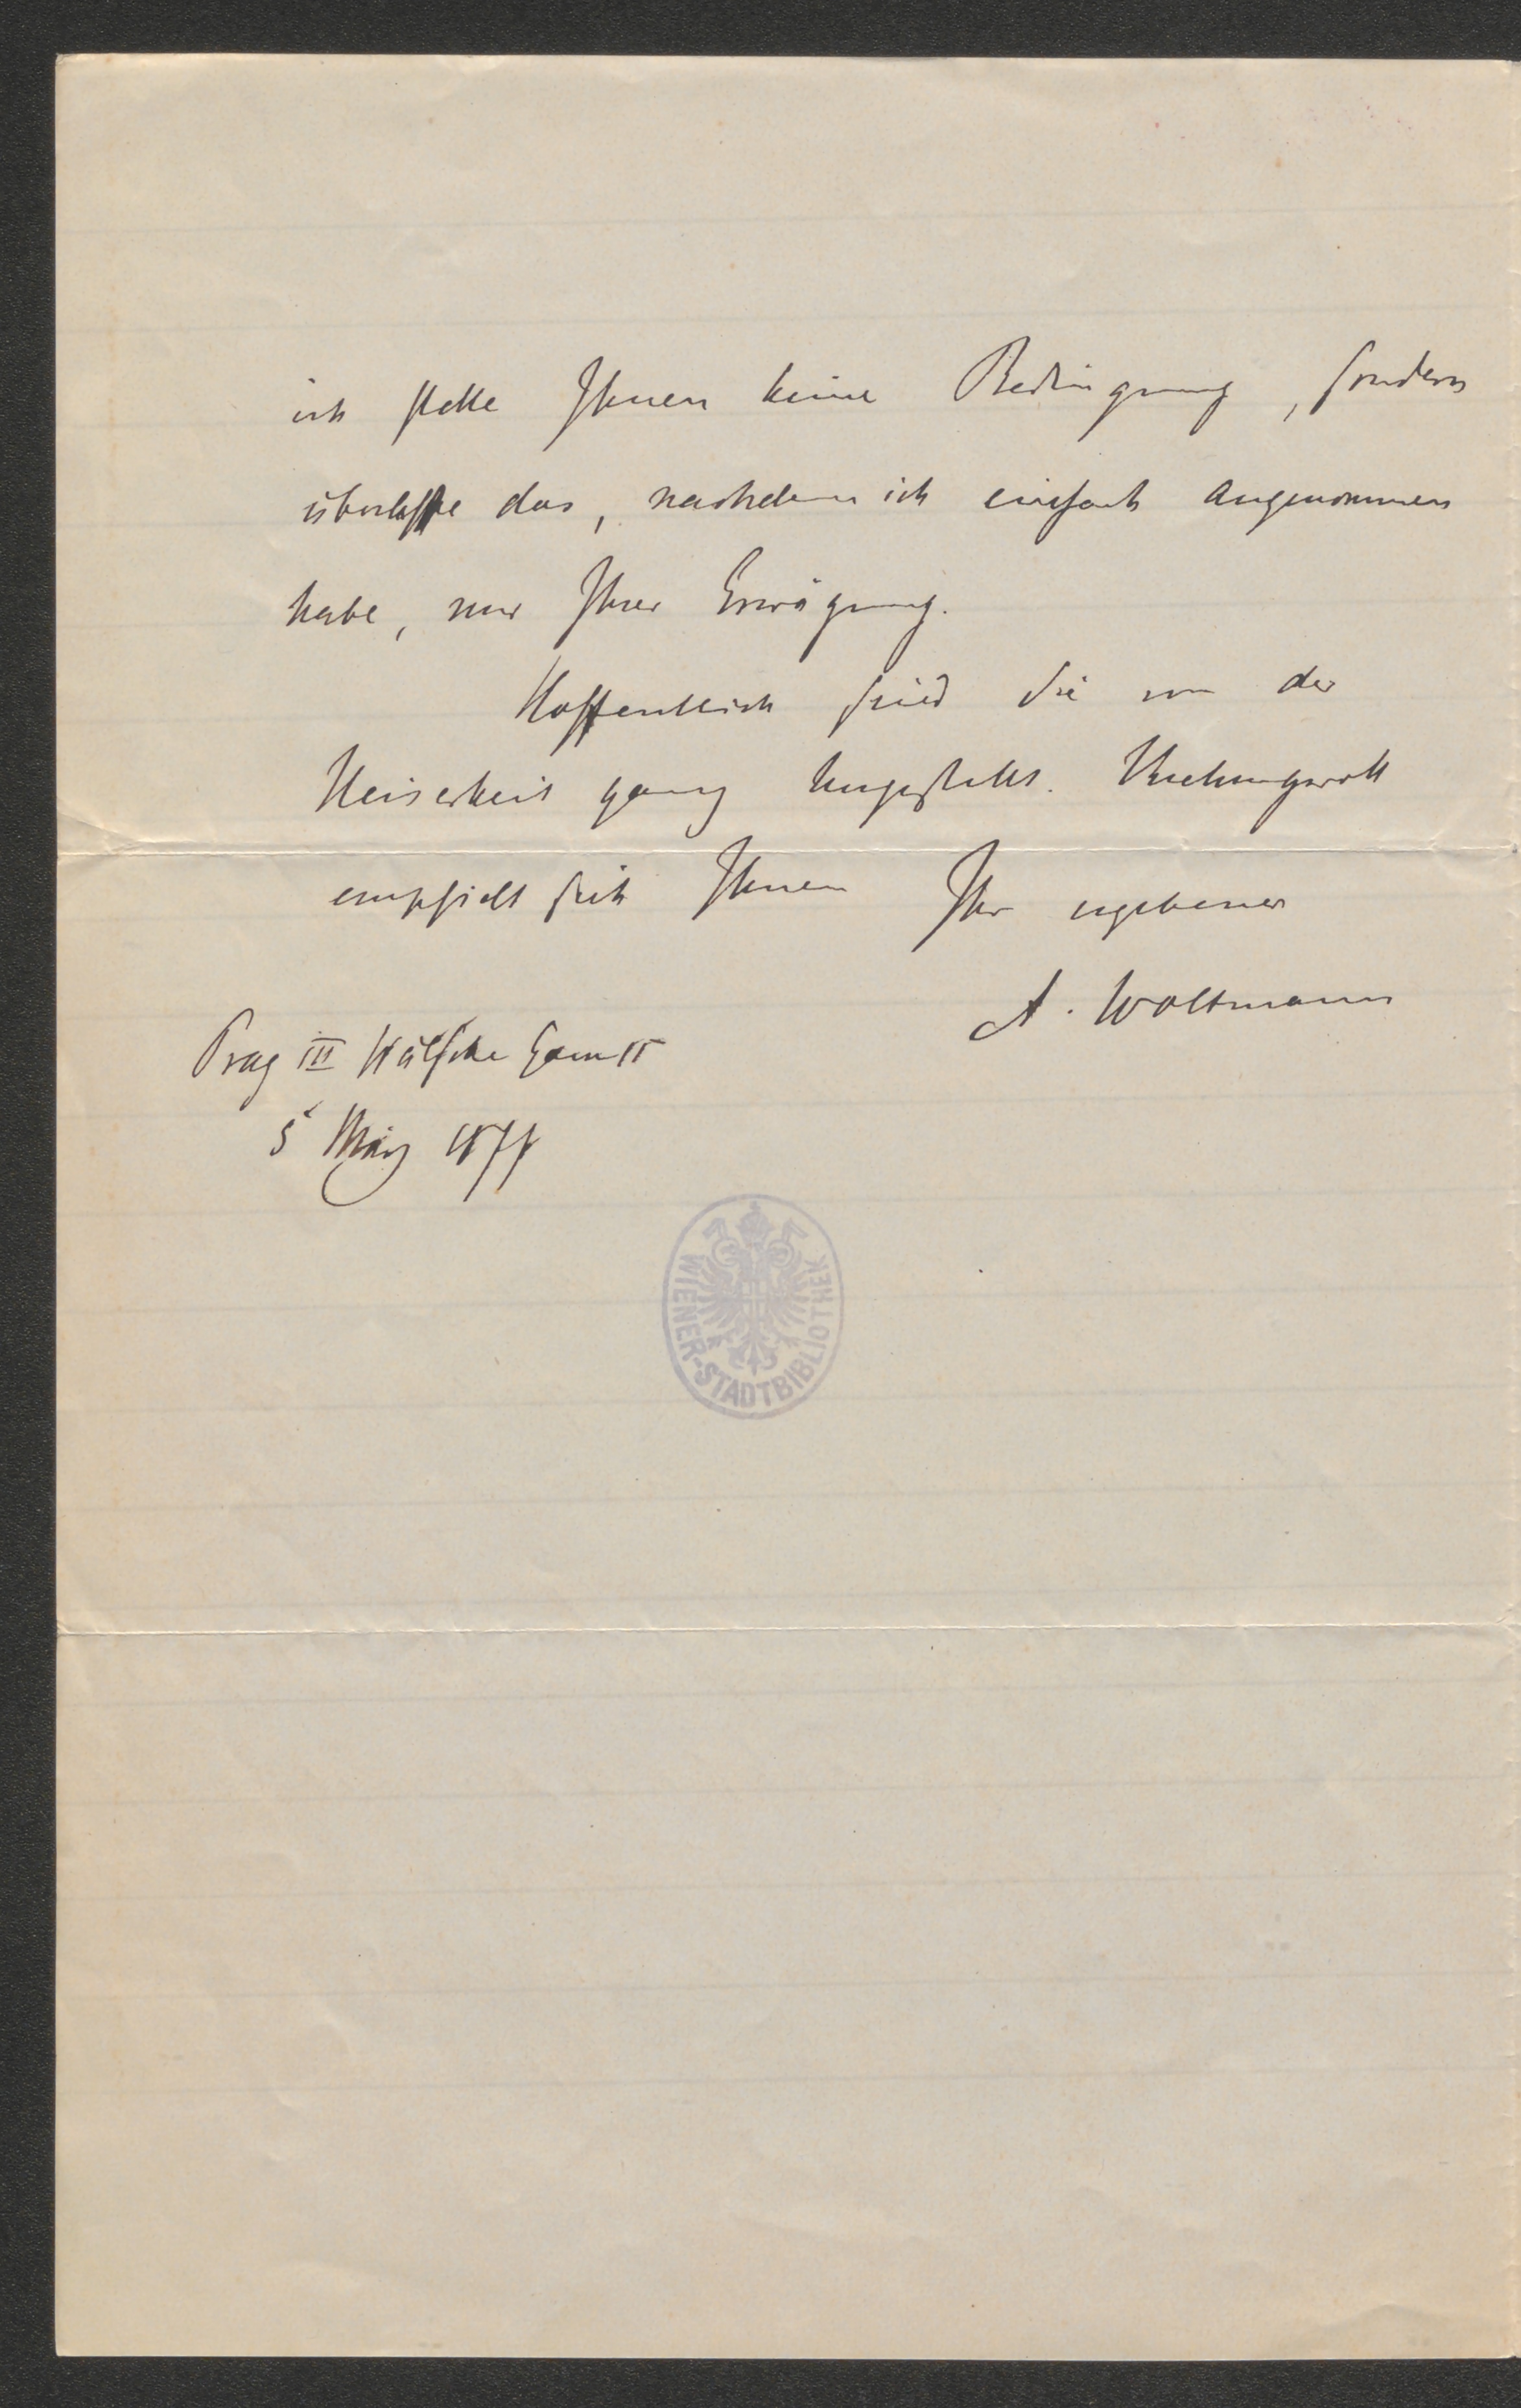 ich stelle Ihnen keine Bedingung, sondern
überlasse das, nachdem ich einfach angenommen
habe, nur Ihrer Erwägung.
Hoffentlich sind Sie von der
Heiserkeit ganz hergestellt. Achtungsvoll
empfielt sich Ihnen Ihr ergebener
A. Woltmann
Prag III Wälsche Gasse
5 März 187
WIENER-STADTBIBLIOTHEK